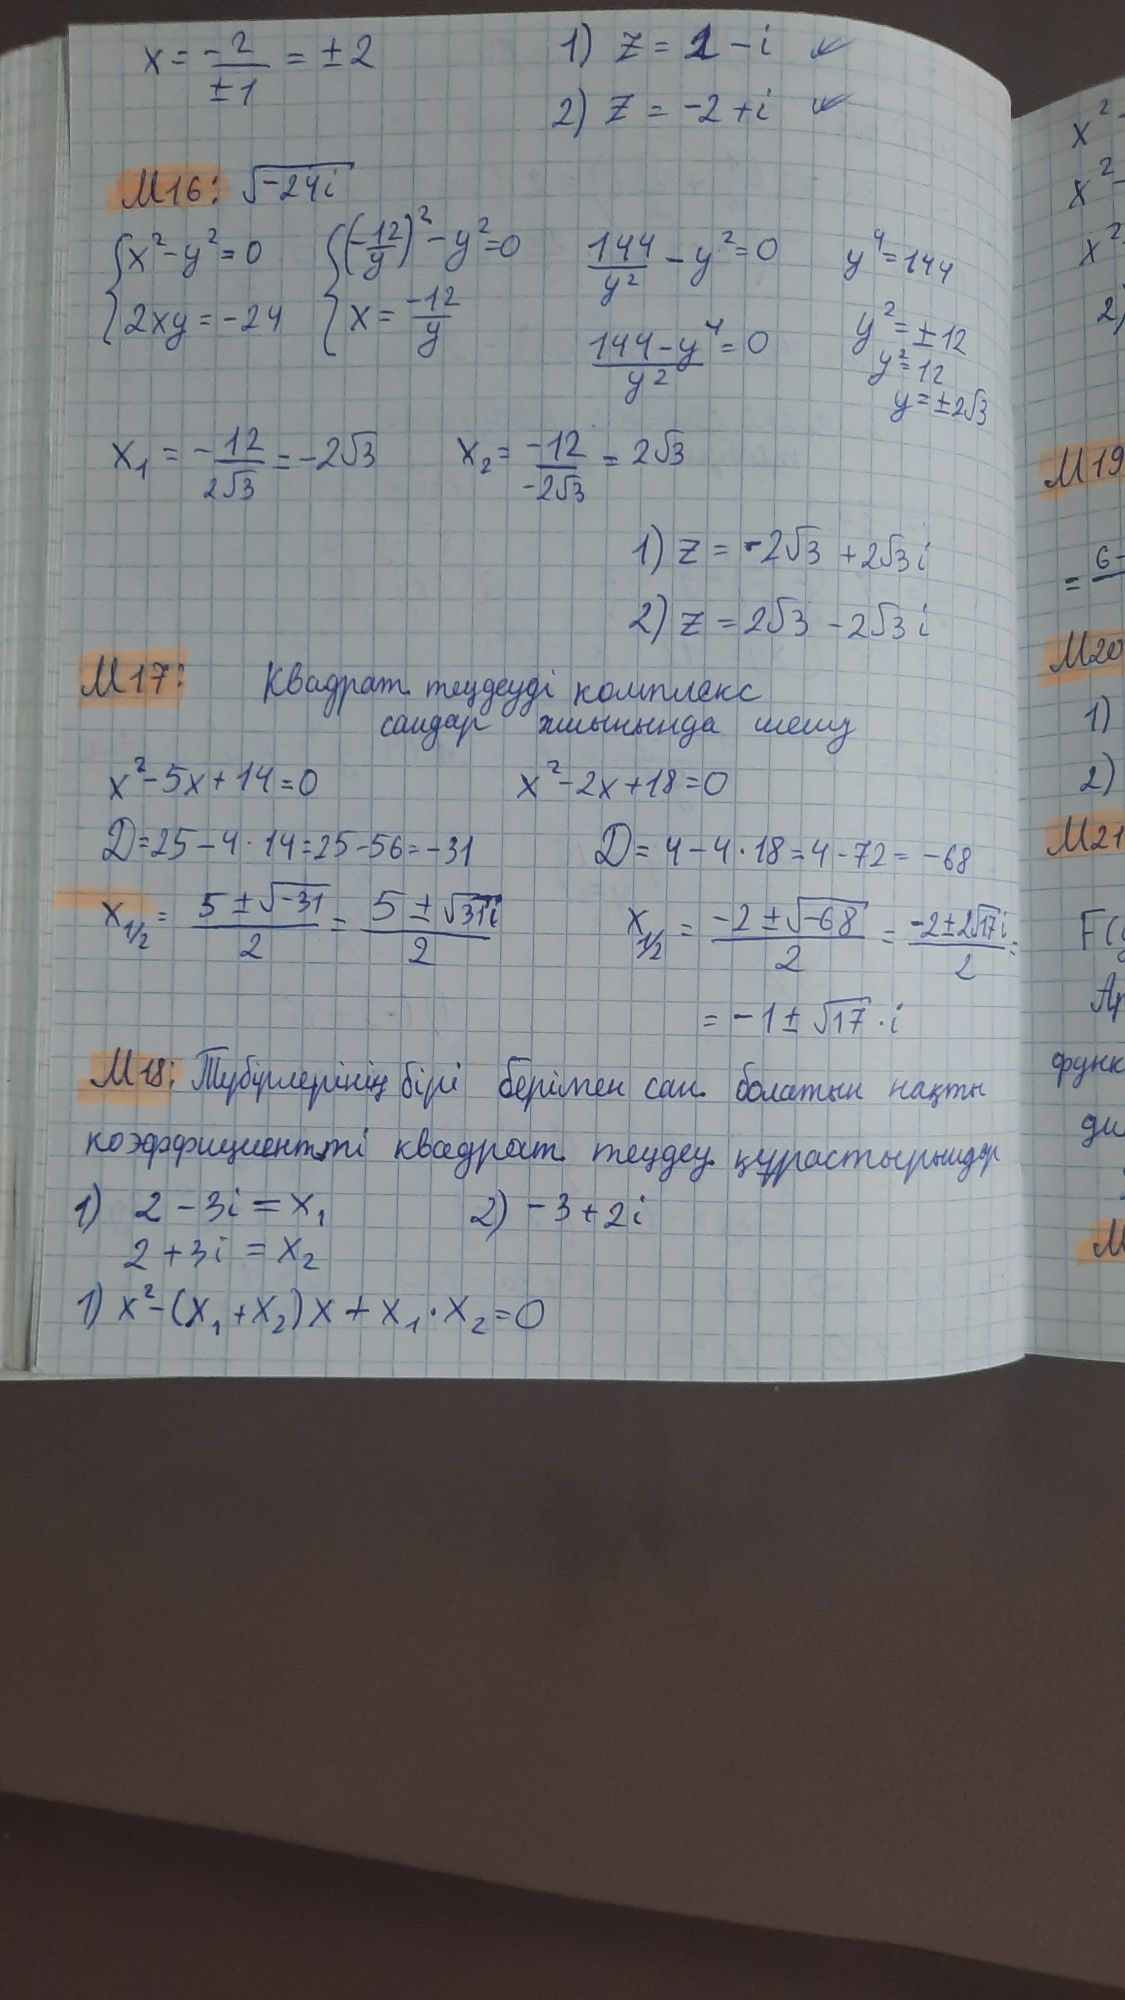 x = -2/±1 = ±2
1) z = 2 - i
2) z = -2 + i
М16: √-24i
{x² - y² = 0
2xy = -24
{(-12/y)² - y² = 0
x = -12/y
144/y² - y² = 0
144 - y⁴/y² = 0
y⁴ = 144
y² = ±12
y² = 12
y = ±2√3
x₁ = -12/2√3 = -2√3
x₂ = -12/-2√3 = 2√3
1) z = -2√3 + 2√3i
2) z = 2√3 - 2√3i
М17: Квадрат теңдеуді комплекс
сандар жиынында шешу
x² - 5x + 14 = 0
D = 25 - 4 · 14 = 25 - 56 = -31
x₁/₂ = 5 ± √-31/2 = 5 ± √31i/2
x² - 2x + 18 = 0
D = 4 - 4 · 18 = 4 - 72 = -68
x₁/₂ = -2 ± √-68/2 = -2 ± 2√17i/2 =
= -1 ± √17 · i
М18: Түбірлерінің бірі берілген сан болатын нақты
коэффициентті квадрат теңдеу құрастырыңдар
1) 2 - 3i = x₁
2 + 3i = x₂
2) -3 + 2i
1) x² - (x₁ + x₂)x + x₁ · x₂ = 0
x² -
x² -
x²
2)
М19
= 6-
М20
1)
2)
М21
F(
Ар
функ
ди
М